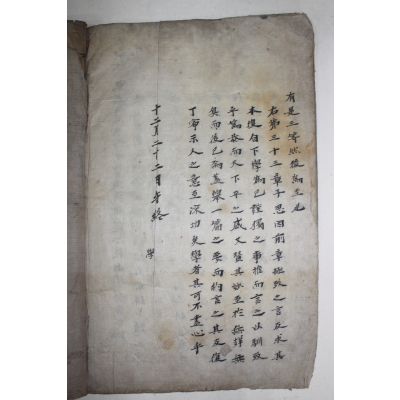 有是三等然後為至也
右第三十三章子思因前章極致之言反求其
本復自下學為己謹獨之事推而言之以馴致
乎篤恭而天下平之盛又贊其妙至於無聲無
臭而後已焉蓋舉一篇之要而約言之其反復
丁寧示人之意至深切矣學者其可不盡心乎
十二月二十二日終
學